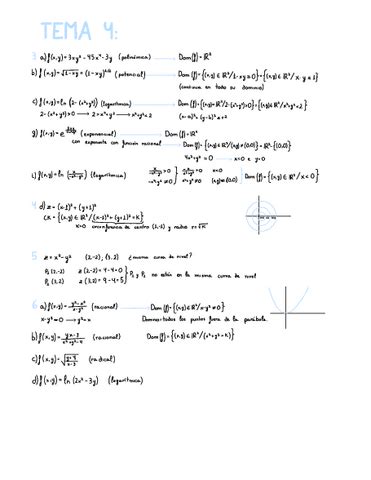 TEMA 4:
3 a) f(x,y) = 3xy² - 45x⁴ - 3y (polinómica) → Dom(f) = ℝ²
b) f(x,y) = √(1-xy) = (1-xy)^(1/2) (potencial) → Dom(f) = {(x,y) ∈ ℝ² / 1-xy ≥ 0} = {(x,y) ∈ ℝ² / x·y ≤ 1}
(continua en todo su dominio)
c) f(x,y) = ln (2-(x²+y²)) (logarítmica) → Dom(f) = {(x,y) ∈ ℝ² / 2-(x²+y²) > 0} = {(x,y) ∈ ℝ² / x²+y² < 2}
2-(x²+y²) > 0 → 2 > x²+y² → x²+y² < 2 (x-a)² + (y-b)² = r²
g) f(x,y) = e (exponencial) → Dom(f) = ℝ²
con exponente con función racional → Dom(f) = {(x,y) ∈ ℝ² / (x,y) ≠ (0,0)} = ℝ² - {(0,0)}
4x² + y² = 0 → x=0 e y=0
i) f(x,y) = ln (logarítmica) x=0 (x,y) ≠ (0,0) Dom(f) = {(x,y) ∈ ℝ² / x < 0}
4 d) z = (x-1)² + (y+1)²
CK = {(x,y) ∈ ℝ² / (x-1)² + (y+1)² = K}
K>0 circunferencia de centro (1,-1) y radio r=√K
5 z = x² - y² (2,-2), (3,2) ¿misma curva de nivel?
P₁ (2,-2) z (2,-2) = 4-4 = 0
P₂ (3,2) z (3,2) = 9-4 = 5 } P₁ y P₂ no están en la misma curva de nivel
6 a) f(x,y) = (racional) → Dom(f) = {(x,y) ∈ ℝ² / x-y² ≠ 0}
x-y² = 0 → y² = x Dominio = todos los puntos fuera de la parábola
b) f(x,y) = (yx-3)/(x²+y²-4) (racional) Dom(f) = {(x,y) ∈ ℝ² / (x²+y² = K)}
c) f(x,y) = √((y+4)/(x-3)) (radical)
d) f(x,y) = ln (2x² - 3y) (logarítmica)